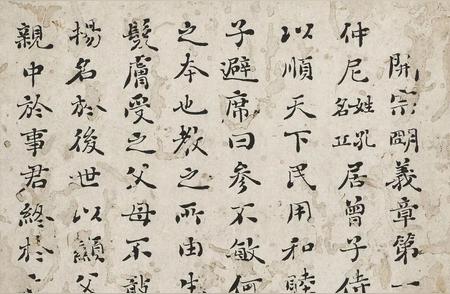 開宗明義章第一
仲尼姓孔名丘居曾子侍
以順天下民用和睦
子避席曰參不敏何
之本也教之所由生
髮膚受之父母不敢
揚名於後世以顯父
親中於事君終於